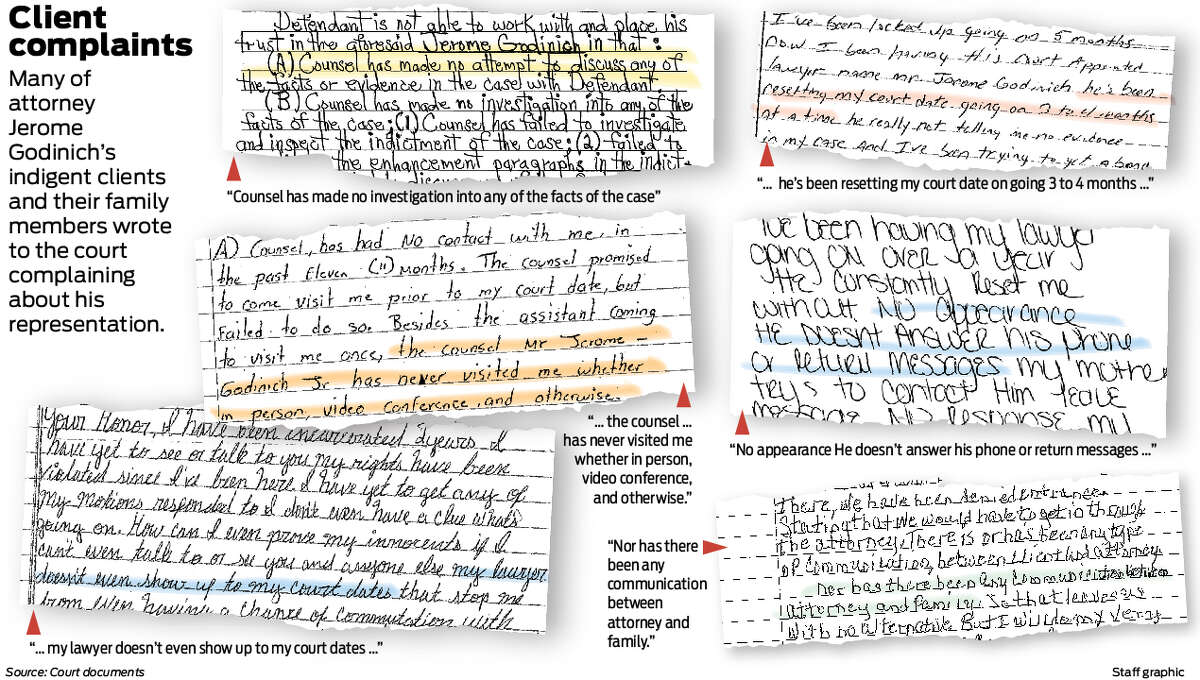 Client
complaints
Many of
attorney
Jerome
Godinich’s
indigent clients
and their family
members wrote
to the court
complaining
about his
representation.
Defendant is not able to work with and place his
trust in the aforesaid Jerome Godinich in that:
(A) Counsel has made no attempt to discuss any of
the facts or evidence in the case with Defendant.
(B) Counsel has made no investigation into any of the
facts of the case; (1) Counsel has failed to investigate
and inspect the indictment of the case; (2) failed to
the enhancement paragraphs in the indict-
“Counsel has made no investigation into any of the facts of the case”
I've been locked up going on 5 months
now I been having this Court Appointed
lawyer name mr. Jerome Godinich he's been
resetting my court date going on 3 to 4 months
at a time he really not telling me no evidence
in my case And I've been trying to get a bond
“... he’s been resetting my court date on going 3 to 4 months ...”
A) Counsel, has had No contact with me, in
the past Eleven (11) months. The counsel promised
to come visit me prior to my court date, but
failed to do so. Besides the assistant coming
to visit me once, the counsel Mr Jerome -
Godinich Jr has never visited me whether
in person, video conference, and otherwise.
“... the counsel ...
has never visited me
whether in person,
video conference,
and otherwise.”
I've been having my lawyer
going ON OVER a year
He Constantly Reset me
without. NO appearance
HE DOESNT ANSWER his phone
or RETURN MESSAGES my mother
trys to Contact Him leave
message NO Response my
“No appearance He doesn’t answer his phone or return messages ...”
Your Honor, I have been incarcerated 2 years. I
have yet to see or talk to you my rights have been
violated since I've been here. I have yet to get any of
my motions responded to I don't even have a clue what's
going on. How can I even prove my innocents if I
can't even talk to or see you and anyone else my lawyer
doesn't even show up to my court dates that stop me
from even having a chance of commutation with
“... my lawyer doesn’t even show up to my court dates ...”
“Nor has there
been any
communication
between
attorney and
family.”
There, we have been denied entrance.
Stating that we would have to get it through
the attorney. There is or has been any type
of Communication, between client and attorney
Nor has there been any Communication between
attorney and family. So that leaves us
with no alternative. But I will do my very
Source: Court documents
Staff graphic